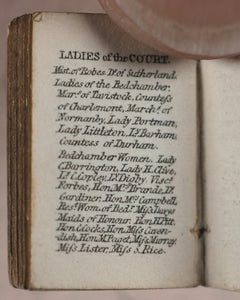 LADIES of the COURT.
Mist. of Robes Ds. of Sutherland.
Ladies of the Bedchamber.
Mars. of Tavistock, Countess
of Charlemont, March. of
Normanby, Lady Portman,
Lady Littleton, Ly. Barham,
Countess of Durham.
Bedchamber Women. Lady
C. Barrington, Lady H. Clive,
Ly. C. Copley, Ly. Digby, Visc.
Forbes, Hon. Mrs. Brande, Ly.
Gardiner, Hon. Mrs. Campbell,
Rest. Wom. of Bedr. Miss
Maids of Honour. Hon. H. Pitt,
Hon. Cocks, Hon. Miss Caven-
dish, Hon. M. Paget, Miss Murray,
Miss Lister, Miss S. Rice.